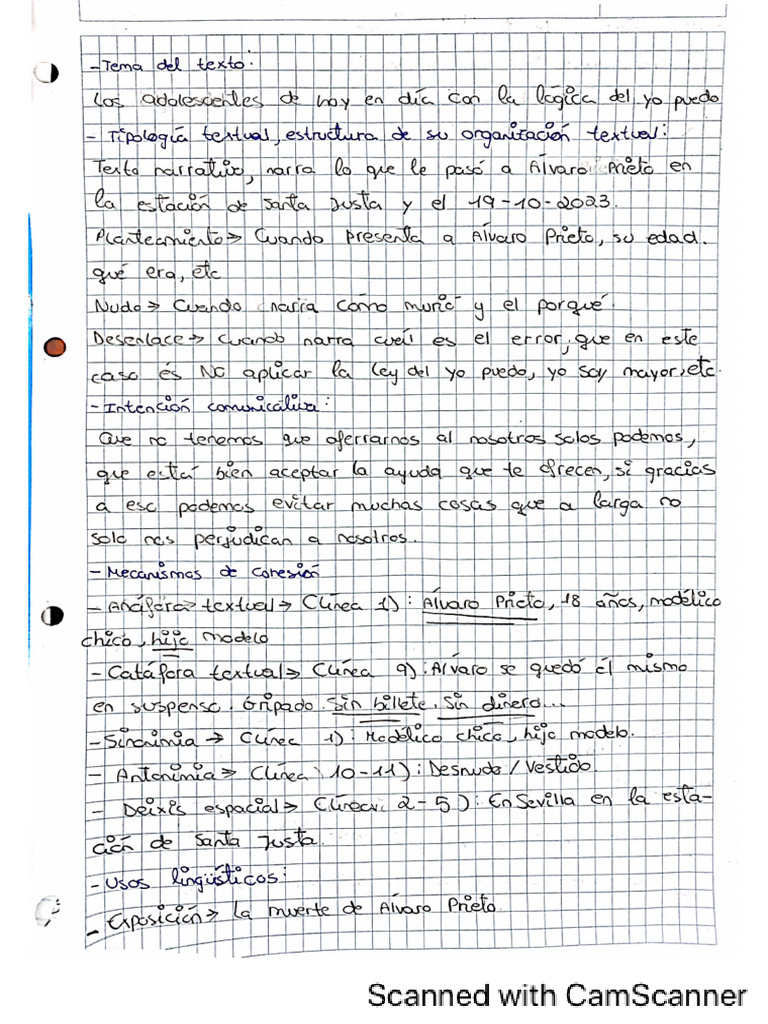 - Tema del texto:
Los adolescentes de hoy en día con la lógica del yo puedo
- Tipología textual, estructura de su organización textual:
Texto narrativo, narra lo que le pasó a Álvaro Prieto en
la estación de Santa Justa y el 19-10-2023.
Planteamiento → Cuando presenta a Álvaro Prieto, su edad.
qué era, etc
Nudo → Cuando narra cómo murió y el porqué.
Desenlace → Cuando narra cuál es el error, que en este
caso és NO aplicar la ley del yo puedo, yo soy mayor, etc.
- Intención comunicativa:
Que no tenemos que aferrarnos al nosotros solos podemos,
que está bien aceptar la ayuda que te ofrecen, si gracias
a eso podemos evitar muchas cosas que a larga no
solo nos perjudican a nosotros.
- Mecanismos de cohesión
- Anáfora textual → (línea 1): Álvaro Prieto, 18 años, modélico
chico, hijo modelo
- Catáfora textual → (línea 9): Álvaro se quedó él mismo
en suspenso. Gripado. Sin billete. Sin dinero...
- Sinonimia → (línea 1): Modélico chico, hijo modelo.
- Antonimia → (línea 10-11): Desnudo / Vestido.
- Deixis espacial → (línea 2-5): En Sevilla en la esta-
ción de Santa Justa.
- Usos lingüísticos:
- Exposición → La muerte de Álvaro Prieto.
Scanned with CamScanner